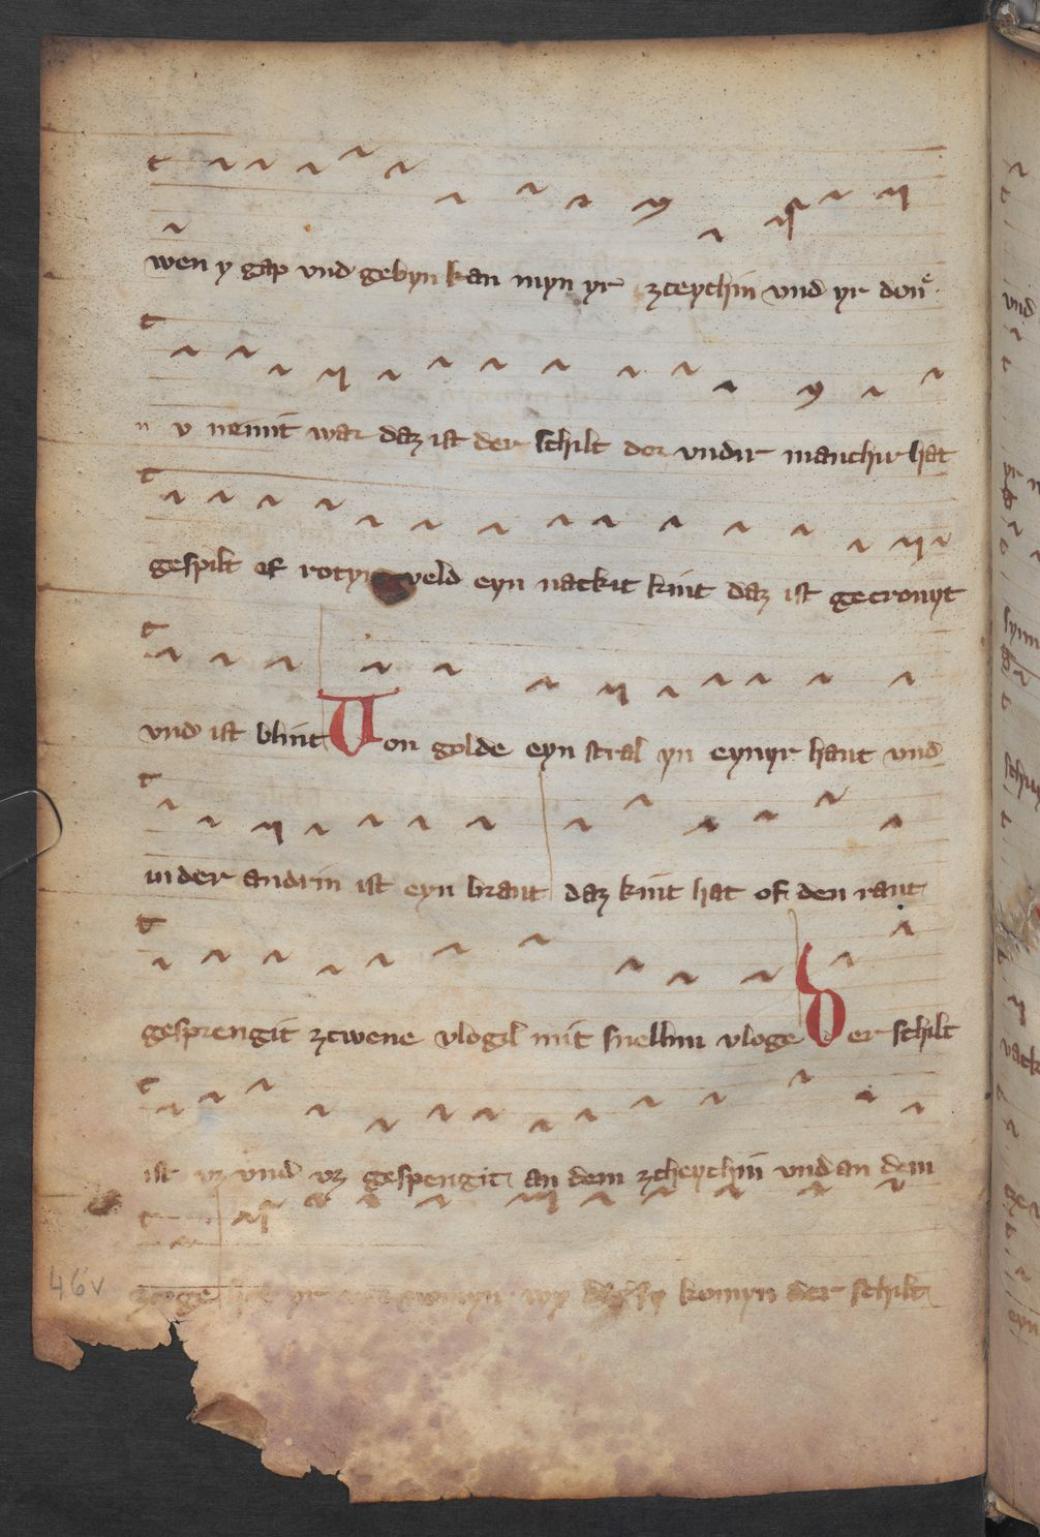 wen y gap vnd gebyn kan myn yr zceychin vnd yr don
n v nemt war daz ist der schilt der vndir manchir hat
gespilt of rotyn veld eyn nackit kint daz ist gecronyt
vnd ist blint Von golde eyn stral yn eynyr hant vnd
in der andrin ist eyn brant daz kint hat of den rant
gesprengit zcwene vlogil mit snellim vloge Der schilt
ist vz vnd vz gespengit an dem zcheychin vnd an dem
zcoge yr komyn der schilt
46v